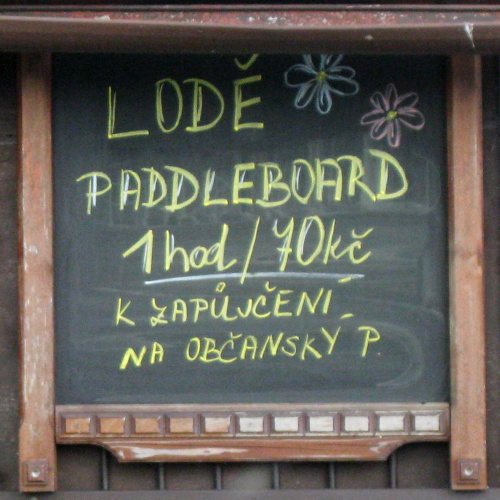 LODĚ
PADDLEBOARD
1hod/70kč
K ZAPŮJČENÍ
NA OBČANSKÝ P